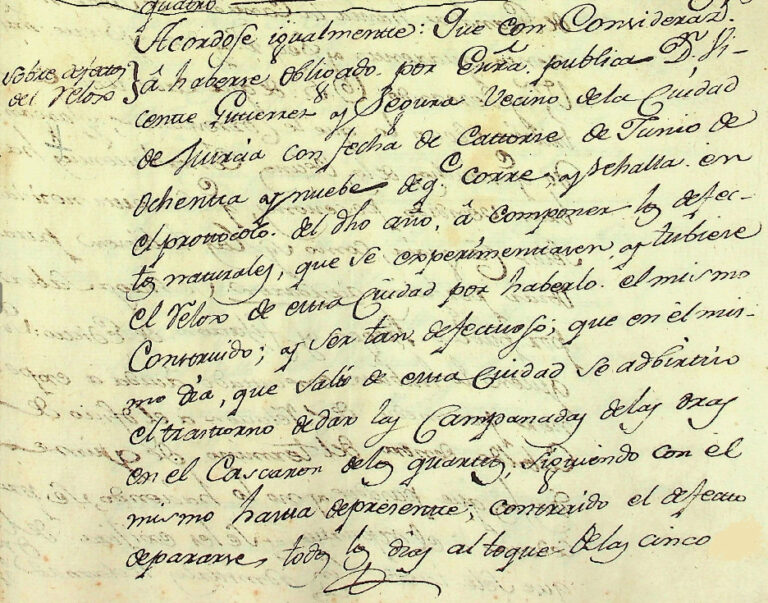 quatro
Acordose igualmente: Que con Consideraz.n
Sobre defectos
del Relox
â haberse obligado por Escrâ. publica D.n Vi-
cente Gutierrez y Segura Vecino de la Ciudad
de Murcia con fecha de Catorse de Junio de
Ochenta y nuebe de q.e corre, y sehalla en
el protocolo del dho año, â componer los defec-
tos naturales, que se experimentasen, y tubiese
el Relox de esta Ciudad por haberlo el mismo
Construido; y ser tan defectuoso; que en el mis-
mo dia, que Salio de esta Ciudad se adbirtio
el trastorno dedar las Campanadas delas oras
en el Cascaron delos quartos, Siguiendo con el
mismo hasta depresente, contraido el defecto
depararse todos los dias al toque delas cinco